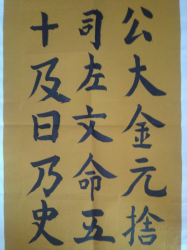 公大金元捨
司左文命五
十及曰乃史